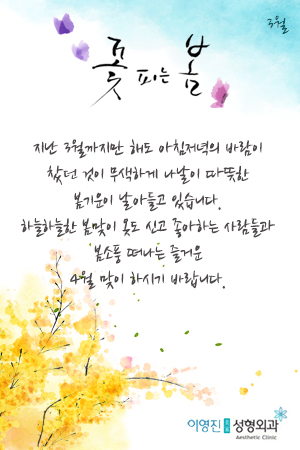 3월
꽃 피는 봄
지난 3월까지만 해도 아침저녁의 바람이
찼던 것이 무색하게 나날이 따뜻한
봄기운이 날아들고 있습니다.
하늘하늘한 봄맞이 옷도 신고 좋아하는 사람들과
봄소풍 떠나는 즐거운
4월 맞이 하시기 바랍니다.
이영진 성형외과
Aesthetic Clinic